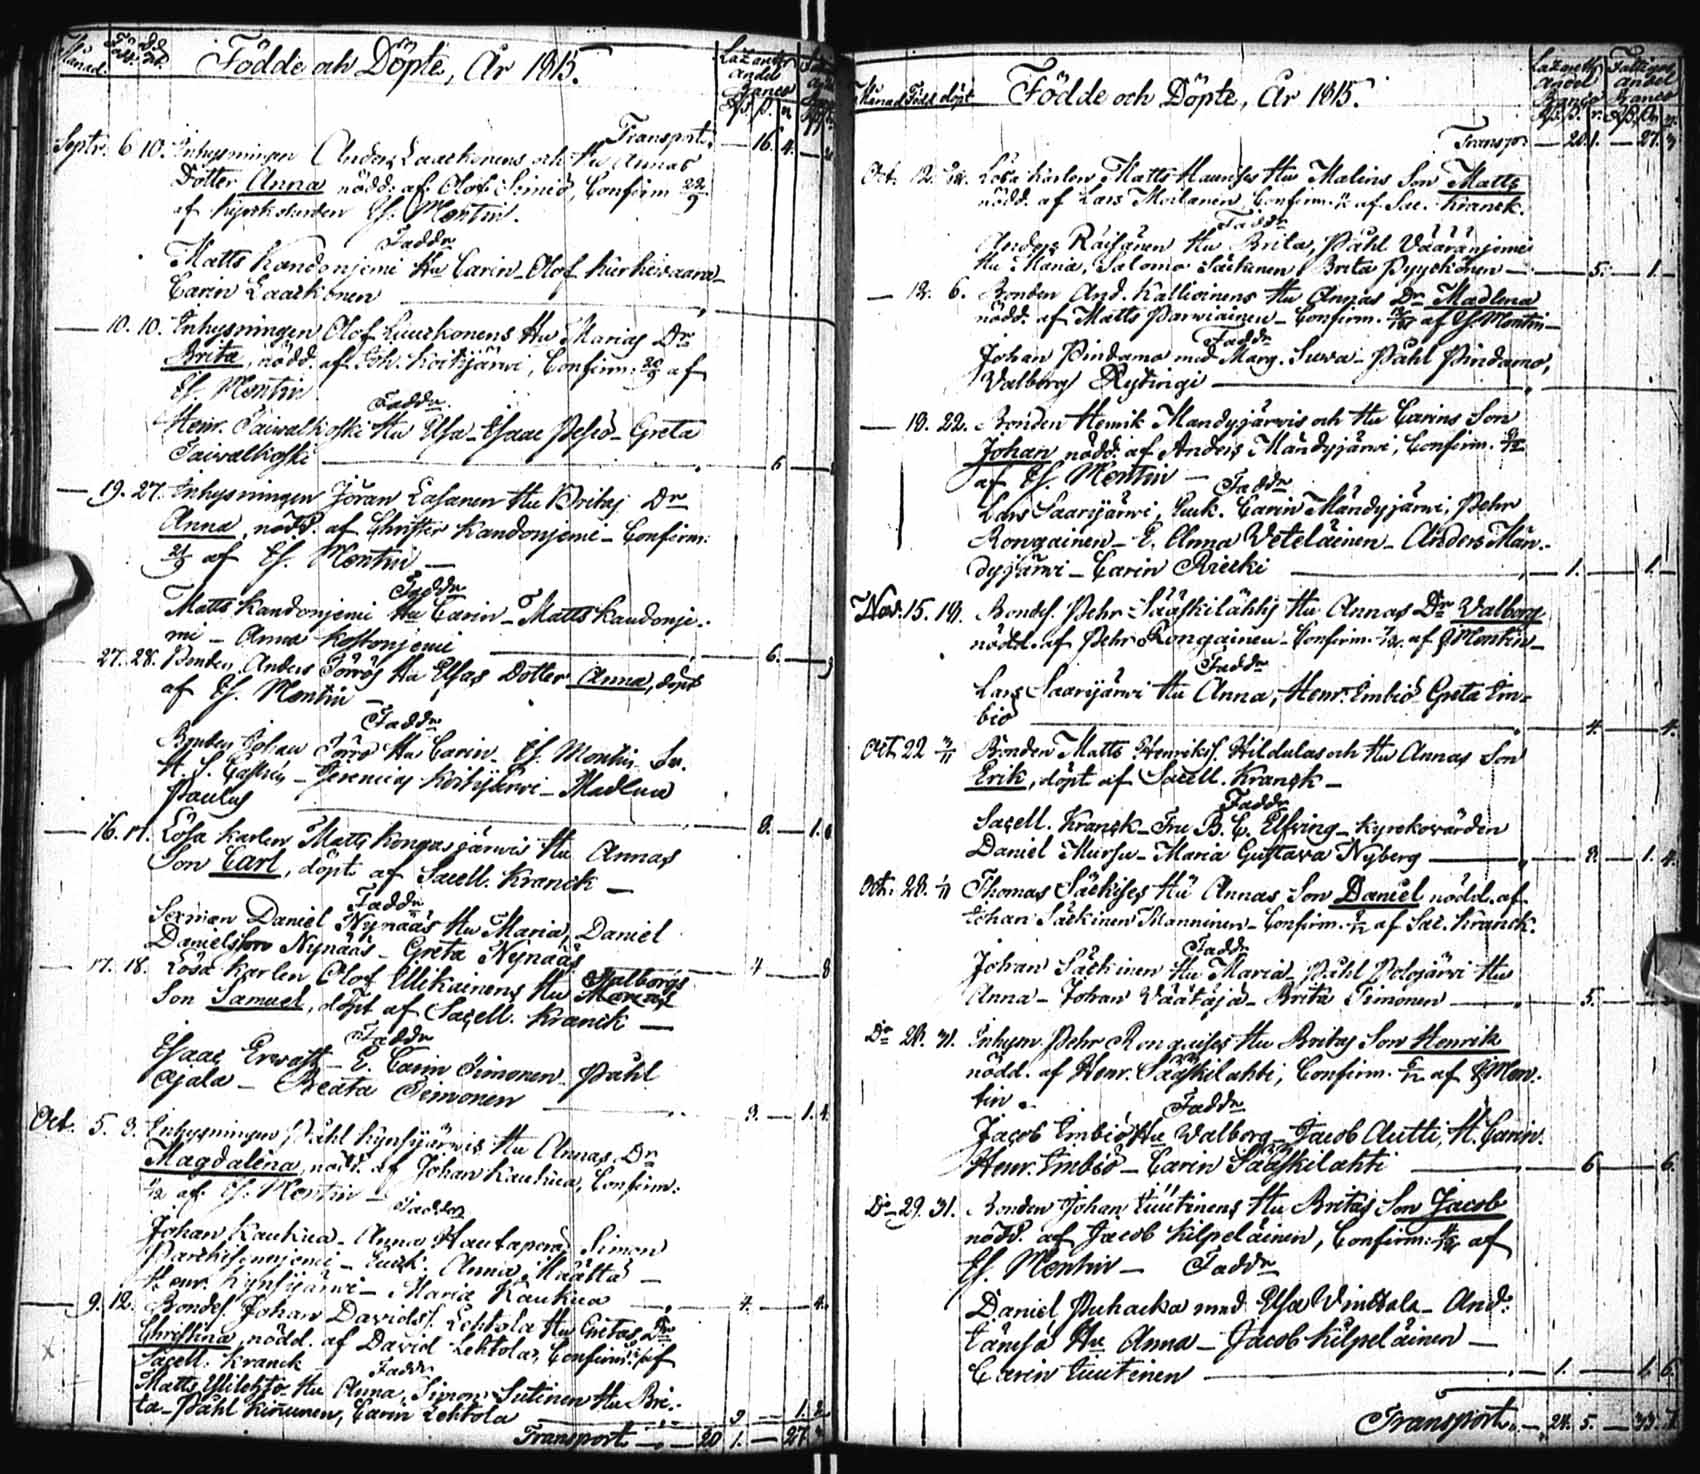 Månad. Född döpt
Födde och Döpte, År 1815.
Lazaretts andel Banco
Transport. — 16. 4.
Septr. 6 10. Inhysningen Anders Laackonens och Hu Annas
Dotter Anna nödd. af Olof Simiö, Confirm 22/9
af Kyrkoherden Es. Montin.
Faddr
Matts Kandonjemi Hu Carin - Olof Kurkivaara -
Carin Laackonen
— 10. 10. Inhysningen Olof Luuckonens Hu Marias Dr
Brita, nödd. af Joh. Korkijärwi, Confirm. af
Es. Montin
Faddr
Henr. Taiwalkoski Hu Elsa - Esaac Pesiö - Greta
Taiwalkoski — 6
— 19. 27. Inhysningen Jöran Lasanen Hu Britas Dr
Anna, nödd. af Christer Kandonjemi - Confirm.
af Es. Montin —
Faddr
Matts Kandonjemi Hu Carin - Matts Kandonje-
mi - Anna Kostonjemi — 6.
27. 28. Bonden Anders Törrös Hu Elsas Dotter Anna, döpt
af Es. Montin —
Faddr
Bonden Johan Törrö Hu Carin - Es. Montin Fru
H. S. Castrén - Jeremias Korkijärwi - Madlena
Paulus — 8. — 1.
— 16. 17. Lösa Karlen Matts Kongasjärwis Hu Annas
Son Carl, döpt af Sacell. Kranck —
Faddr
Sexman Daniel Nynääs Hu Maria, Daniel
Danielsson Nynääs - Greta Nynääs — 4 — 8
— 17. 18. Lösa Karlen Olof Ellikainens Hu Valborgs
Son Samuel, döpt af Sacell. Kranck —
Faddr
Esaac Erwast - E. Carin Simonen - Påhl
Ojala - Beata Simonen — 3. — 1. 4.
Oct. 5. 8. Inhysningen Påhl Kynsijärwis Hu Annas Dr
Magdalena, nödd. af Johan Kaukua, Confirm:
af Es. Montin —
Faddr
Johan Kaukua - Anna Hautaperä Simon
Parckisenjemi - Enck. Anna Määttä -
Henr. Kynsijärwi - Maria Kaukua — 4. — 4.
— 9. 12. Bondes. Johan Davidss. Lehtola Hu Gretas Dr
Christina, nödd. af David Lehtola, Confirm. af
Sacell. Kranck
Faddr
Matts Ylilehto Hu Anna, Simon Sutinen Hu Bri-
ta - Påhl Kinnunen, Carin Lehtola — 9 — 1. 2.
Transport — 20 1. — 27
Månad Född döpt
Födde och Döpte, År 1815.
Lazaretts andel Banco
Fattigas andel Banco
Transp. — 20. 1. — 27. 3
Oct. 12. Lösa Karlen Matts Haunises Hu Malins Son Matts
nödd. af Lars Moilanen, Confirm. af Sac. Kranck.
Faddr
Anders Räisänen Hu Brita, Påhl Vääränjemi
Hu Maria, Salomo Säckinen, Brita Pyyckönen — 5. — 1.
— 12. 6. Bonden And. Kallioinens Hu Annas Dr Madlena
nödd. af Matts Parwiainen - Confirm. af Es. Montin -
Faddr
Johan Pindamo med Marg. Suwa - Påhl Pindamo,
Valborg Rytingi
— 19. 22. Bonden Henrik Mandyjärwis och Hu Carins Son
Johan nödd. af Anders Mändyjärwi, Confirm.
af Es. Montin —
Faddr
Lars Saarijärwi, Enck. Carin Mändyjärwi, Pehr
Rongainen - E. Anna Veteläinen - Anders Män-
dyjärwi - Carin Riecki — 1. — 1.
Nov. 15. 19. Bondes. Pehr Sääskilähtis Hu Annas Dr Valborg
nödd. af Pehr Rongainen - Confirm. af Es. Montin -
Faddr
Lars Saarijärwi Hu Anna, Henr. Embiö Greta Em-
biö — 4. — 4.
Oct. 22 3/11 Bonden Matts Henrikss. Hildulas och Hu Annas Son
Erik, döpt af Sacell. Kranck —
Faddr
Sacell. Kranck - Fru B. C. Elfving - Kyrkovärden
Daniel Mursu - Maria Gustava Nyberg — 8. — 1. 4.
Oct. 28. Thomas Säckises Hu Annas Son Daniel nödd. af
Johan Säckinen Manninen - Confirm. af Sac. Kranck.
Faddr
Johan Säckinen Hu Maria - Påhl Polojärwi Hu
Anna - Johan Väätäjä - Brita Simonen — 5.
Do 28. 31. Inhysn. Pehr Rongaises Hu Britas Son Henrik
nödd. af Henr. Sääskilahti, Confirm. af Es. Mon-
tin.
Faddr
Jacob Embiö Hu Valborg - Jacob Autti, H. Carin
Henr. Embiö - Carin Sääskilahti — 6 — 6.
Do 29. 31. Bonden Johan Luutinens Hu Britas Son Jacob
nödd. af Jacob Kilpeläinen, Confirm: af
Es. Montin —
Faddr
Daniel Puhacka med Elsa Vinttala - And:
Lämsä Hu Anna - Jacob Kilpeläinen -
Carin Luutinen — 1. — 1. 6.
Transport. — 24. 5. — 33.